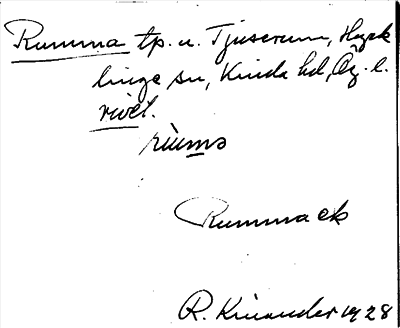 Rumma tp. u. Tjuserum, Hyck
linge sn, Kinda hd, Ög. l.
rivel.
Rummack
R. Kinander 1928